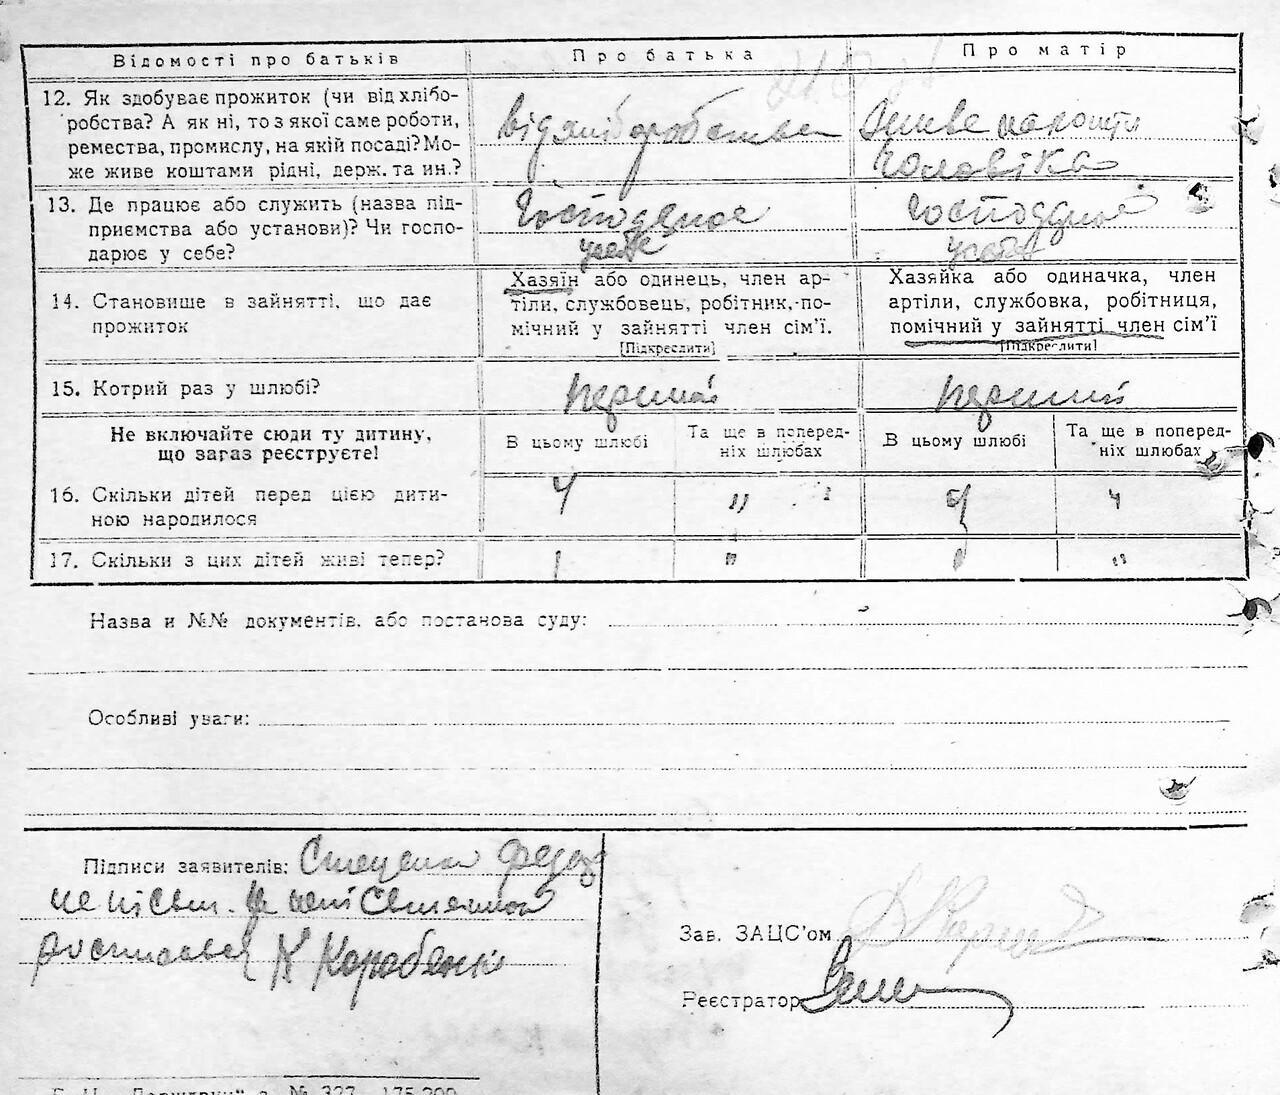 Відомості про батьків
Про батька
Про матір
12. Як здобуває прожиток (чи від хлібо-
робства? А як ні, то з якої саме роботи,
ремества, промислу, на якій посаді? Мо-
же живе коштами рідні, держ. та ин.?
від хліборобства
Живе на кошти
чоловіка
13. Де працює або служить (назва під-
приємства або установи)? Чи госпо-
дарює у себе?
Господарює
у себе
господарює
у себе
14. Становище в зайнятті, що дає
прожиток
Хазяїн або одинець, член ар-
тіли, службовець, робітник, по-
мічний у зайнятті член сім'ї.
[Підкреслити]
Хазяйка або одиначка, член
артіли, службовка, робітниця,
помічний у зайнятті член сім'ї
[Підкреслити]
15. Котрий раз у шлюбі?
перший
перший
Не включайте сюди ту дитину,
що загаз реєструєте!
В цьому шлюбі
Та ще в поперед-
ніх шлюбах
В цьому шлюбі
Та ще в поперед-
ніх шлюбах
16. Скільки дітей перед цією дити-
ною народилося
4
"
4
"
17. Скільки з цих дітей живі тепер?
1
"
1
"
Назва и №№ документів, або постанова суду:
Особливі уваги:
Підписи заявителів:
росписався Коробенко
Зав. ЗАЦС'ом
Реєстратор
№ 327 175.200